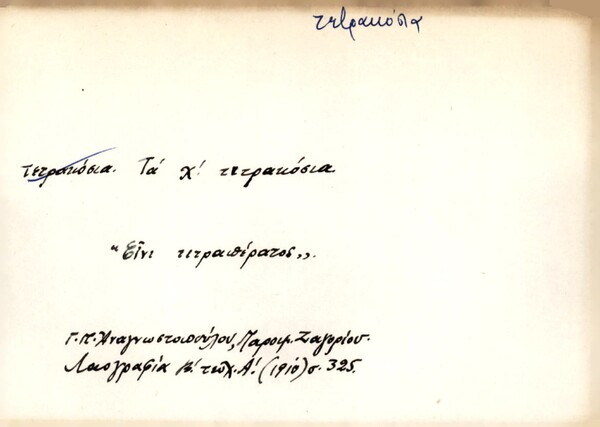 τετρακόσια
τετρακόσια. Τά χ! τετρακόσια
"Εἶνι τιτραπέρατος,,.
Γ. Π. Ἀναγνωστοπούλου, Παροιμ. Ζαγορίου.
Λαογραφία Β! τεῦχ. Α! (1910) σ. 325.